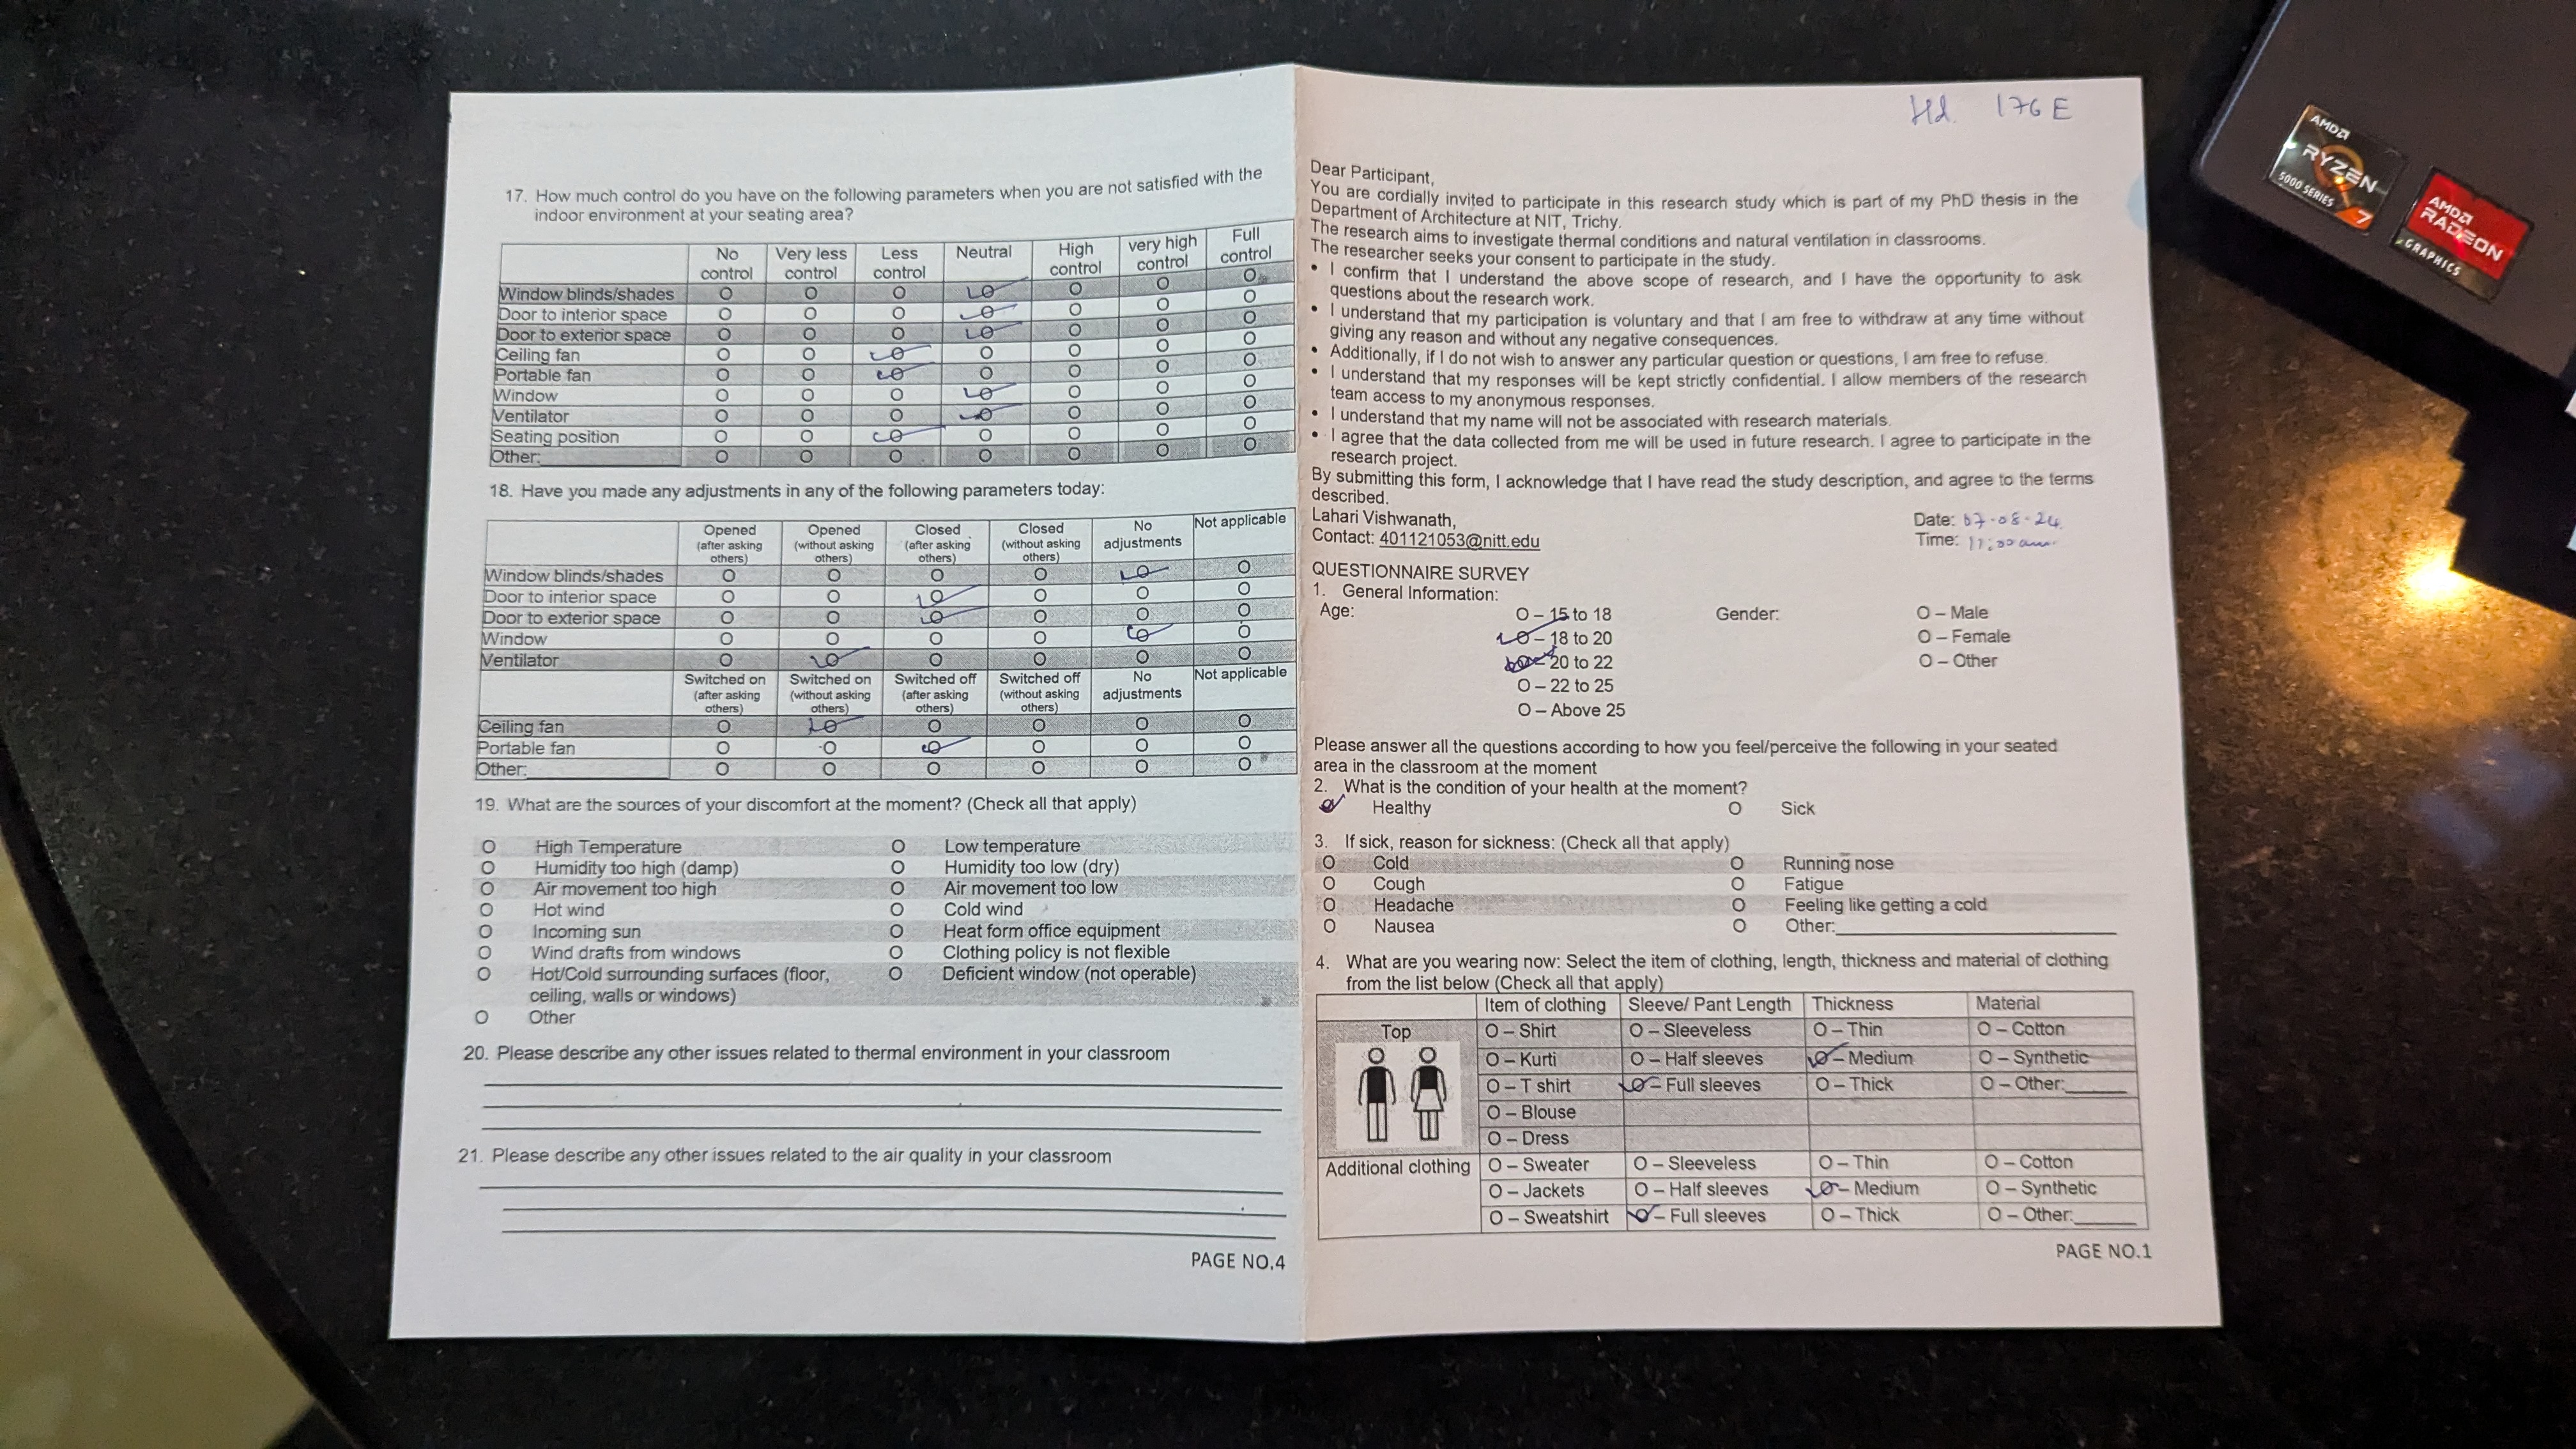 17. How much control do you have on the following parameters when you are not satisfied with the
indoor environment at your seating area?
No control Very less control Less control Neutral High control very high control Full control
Window blinds/shades O O O O O O O
Door to interior space O O O O O O O
Door to exterior space O O O O O O O
Ceiling fan O O O O O O O
Portable fan O O O O O O O
Window O O O O O O O
Ventilator O O O O O O O
Seating position O O O O O O O
Other: O O O O O O O
18. Have you made any adjustments in any of the following parameters today:
Opened (after asking others) Opened (without asking others) Closed (after asking others) Closed (without asking others) No adjustments Not applicable
Window blinds/shades O O O O O O
Door to interior space O O O O O O
Door to exterior space O O O O O O
Window O O O O O O
Ventilator O O O O O O
Switched on (after asking others) Switched on (without asking others) Switched off (after asking others) Switched off (without asking others) No adjustments Not applicable
Ceiling fan O O O O O O
Portable fan O O O O O O
Other: O O O O O O
19. What are the sources of your discomfort at the moment? (Check all that apply)
O High Temperature O Low temperature
O Humidity too high (damp) O Humidity too low (dry)
O Air movement too high O Air movement too low
O Hot wind O Cold wind
O Incoming sun O Heat form office equipment
O Wind drafts from windows O Clothing policy is not flexible
O Hot/Cold surrounding surfaces (floor, O Deficient window (not operable)
ceiling, walls or windows)
O Other
20. Please describe any other issues related to thermal environment in your classroom
21. Please describe any other issues related to the air quality in your classroom
PAGE NO.4
176 E
Dear Participant,
You are cordially invited to participate in this research study which is part of my PhD thesis in the
Department of Architecture at NIT, Trichy.
The research aims to investigate thermal conditions and natural ventilation in classrooms.
The researcher seeks your consent to participate in the study.
• I confirm that I understand the above scope of research, and I have the opportunity to ask
questions about the research work.
• I understand that my participation is voluntary and that I am free to withdraw at any time without
giving any reason and without any negative consequences.
• Additionally, if I do not wish to answer any particular question or questions, I am free to refuse.
• I understand that my responses will be kept strictly confidential. I allow members of the research
team access to my anonymous responses.
• I understand that my name will not be associated with research materials.
• I agree that the data collected from me will be used in future research. I agree to participate in the
research project.
By submitting this form, I acknowledge that I have read the study description, and agree to the terms
described.
Lahari Vishwanath, Date: 07-08-24
Contact: 401121053@nitt.edu Time: 11:00 am
QUESTIONNAIRE SURVEY
1. General Information:
Age: O – 15 to 18 Gender: O – Male
O – 18 to 20 O – Female
O – 20 to 22 O – Other
O – 22 to 25
O – Above 25
Please answer all the questions according to how you feel/perceive the following in your seated
area in the classroom at the moment
2. What is the condition of your health at the moment?
O Healthy O Sick
3. If sick, reason for sickness: (Check all that apply)
O Cold O Running nose
O Cough O Fatigue
O Headache O Feeling like getting a cold
O Nausea O Other:
4. What are you wearing now: Select the item of clothing, length, thickness and material of clothing
from the list below (Check all that apply)
Item of clothing Sleeve/ Pant Length Thickness Material
Top O – Shirt O – Sleeveless O – Thin O – Cotton
O – Kurti O – Half sleeves O – Medium O – Synthetic
O – T shirt O – Full sleeves O – Thick O – Other:
O – Blouse
O – Dress
Additional clothing O – Sweater O – Sleeveless O – Thin O – Cotton
O – Jackets O – Half sleeves O – Medium O – Synthetic
O – Sweatshirt O – Full sleeves O – Thick O – Other:
PAGE NO.1
AMD
RYZEN
5000 SERIES 7
AMD
RADEON
GRAPHICS